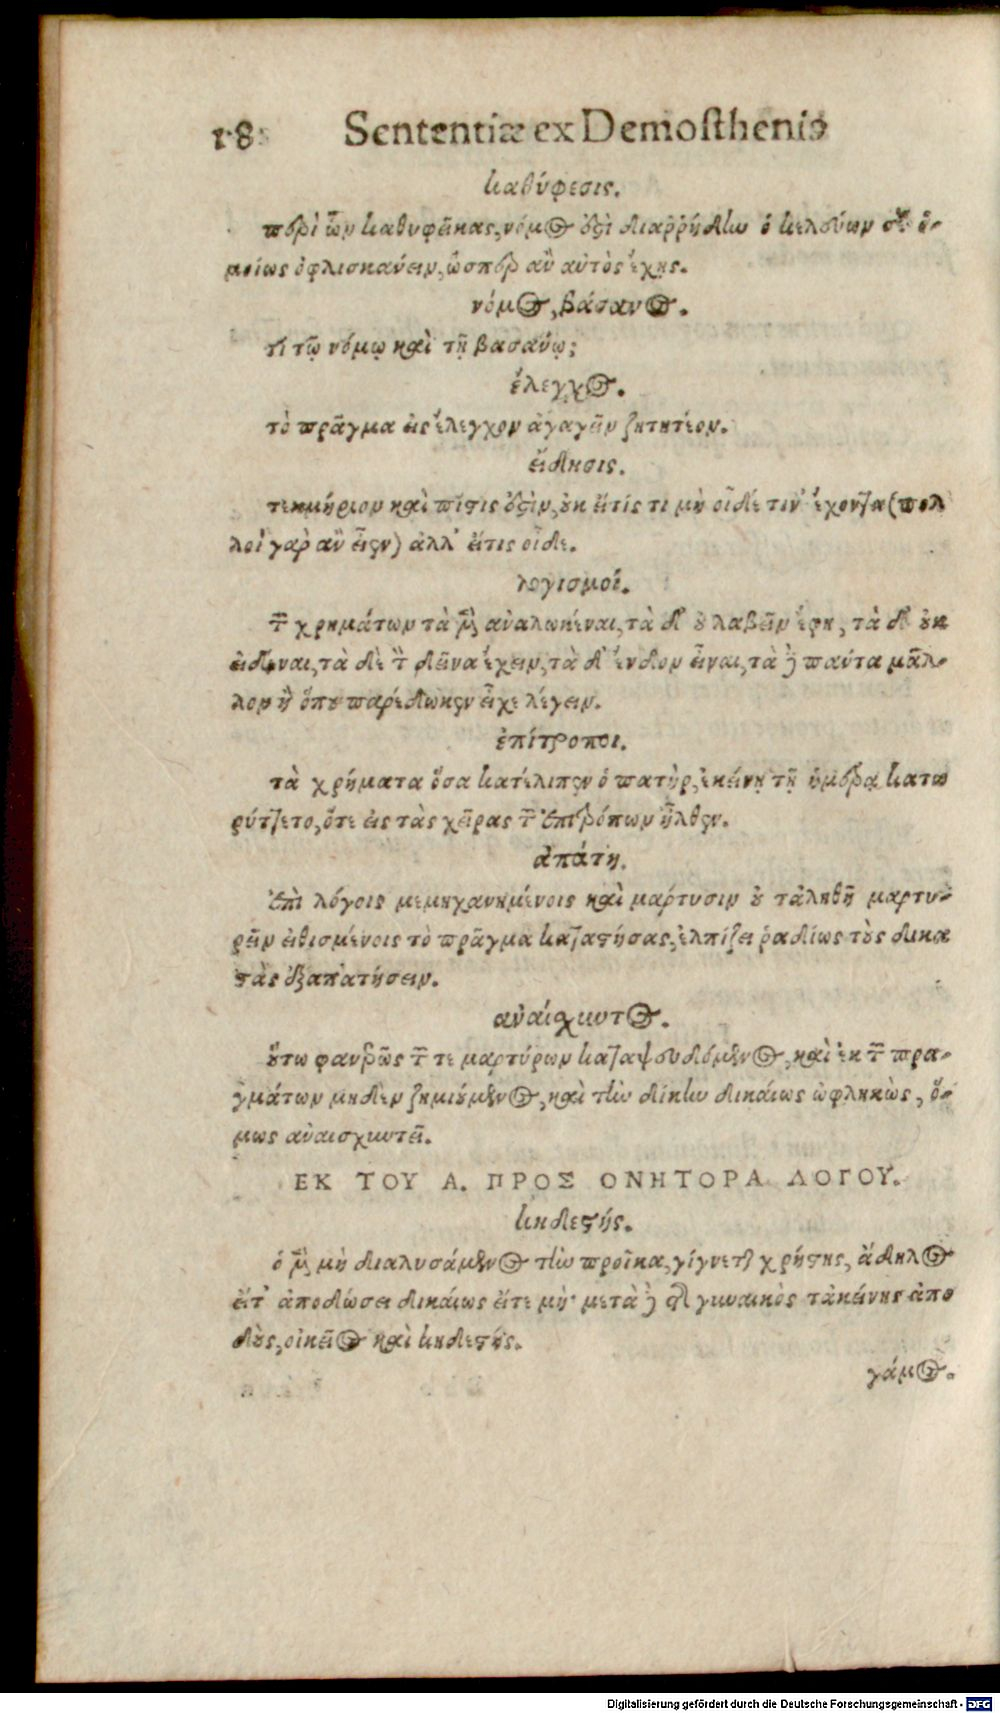 18 Sententiæ ex Demosthenis
καθύφεσις.
περὶ ὧν καθυφεῖκας, νόμος ἐστὶ διαῤῥήδην ὁ κελεύων σε ὁ-
μοίως ὀφλισκάνειν, ὥσπερ ἂν αὐτὸς ἔχῃς.
νόμος, βάσανος.
τί τῷ νόμῳ καὶ τῇ βασάνῳ;
ἔλεγχος.
τὸ πρᾶγμα εἰς ἔλεγχον ἀγαγεῖν ζητητέον.
εἴδησις.
τεκμήριον καὶ πίστις ἐστὶν, οὐκ εἴτίς τι μὴ οἶδέ τιν' ἔχοντα (πολ
λοὶ γὰρ ἂν εἶεν) ἀλλ' εἴτις οἶδε.
λογισμοί.
τῶν χρημάτων τὰ μὲν ἀναλωκέναι, τὰ δ' οὐ λαβεῖν ἔφη, τὰ δ' οὐκ
εἰδέναι, τὰ δὲ τὸν δεῖνα ἔχειν, τὰ δ' ἔνδον εἶναι, τὰ δὲ πάντα μᾶλ-
λον ἢ ὅπου παρέδωκεν εἶχε λέγειν.
ἐπίτροποι.
τὰ χρήματα ὅσα κατέλιπεν ὁ πατὴρ, ἐκείνῃ τῇ ἡμέρᾳ κατω
ρύττετο, ὅτε εἰς τὰς χεῖρας τῶν ἐπιτρόπων ἦλθεν.
ἀπάτη.
ἐπὶ λόγοις μεμηχανημένοις καὶ μάρτυσιν οὐ τἀληθῆ μαρτυ-
ρεῖν εἰθισμένοις τὸ πρᾶγμα καταστήσας, ἐλπίζει ῥαδίως τοὺς δικα
στὰς ἐξαπατήσειν.
ἀναίσχυντος.
οὕτω φανερῶς τῶν τε μαρτύρων καταψευδόμενος, καὶ ἐκ τῶν πρα-
γμάτων μηδὲν ζημιούμενος, καὶ τὴν δίκην δικαίως ὠφληκὼς, ὅ-
μως ἀναισχυντεῖ.
ΕΚ ΤΟΥ Α. ΠΡΟΣ ΟΝΗΤΟΡΑ ΛΟΓΟΥ.
κηδεστής.
ὁ μὲν μὴ διαλυσάμενος τὴν προῖκα, γίγνεται χρήστης, ἄδηλος
εἴτ' ἀποδώσει δικαίως εἴτε μή· μετὰ δὲ τῆς γυναικὸς τἀκείνης ἀπο
δοὺς, οἰκεῖος καὶ κηδεστής.
γάμος.
Digitalisierung gefördert durch die Deutsche Forschungsgemeinschaft - DFG